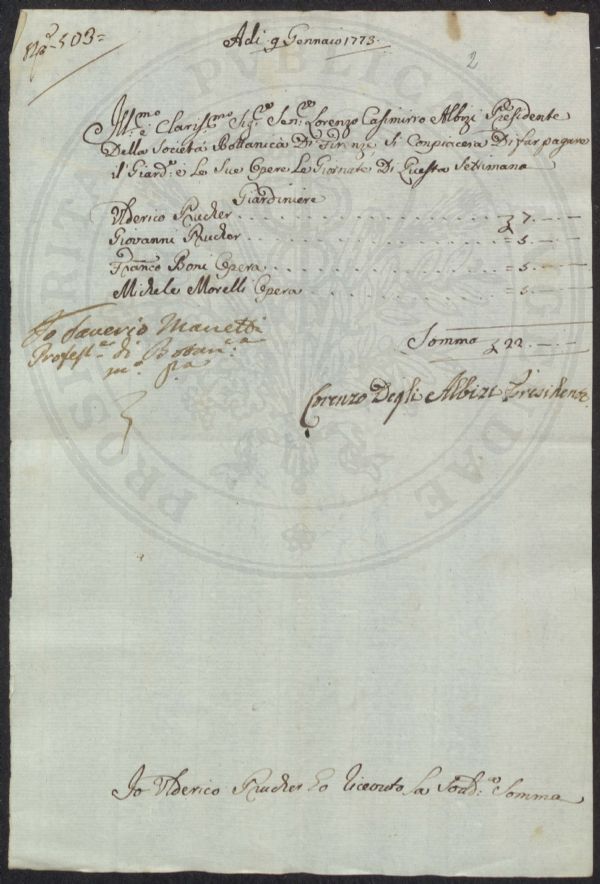 N.º 503=
Adi 9 Gennaio 1773.
2
Ill:mo e Clariss:mo Sig:re Sen:re Lorenzo Casimirro Albizi Presidente
Della Società Bottanica Di Firenze Si Conpiacerà Di far pagare
il Giard:e e Le Sue Opere Le Giornate Di Questa Settimana
Giardiniere
Ulderico Prucker . . . . . . . . . . . . £ 7. — —
Giovanni Prucker . . . . . . . . . . . . = 5. — —
Franco Boni Opera . . . . . . . . . . . = 5. — —
Michele Morelli Opera . . . . . . . . . = 5. — —
Somma £ 22. — —
Io Saverio Manetti
Profess:e di Botan:ca
m:o p:a
Lorenzo Degli Albizi Presidente
Io Ulderico Prucker ho riceuto la Soud:a Somma
PROSPERITATI PUBLICAE